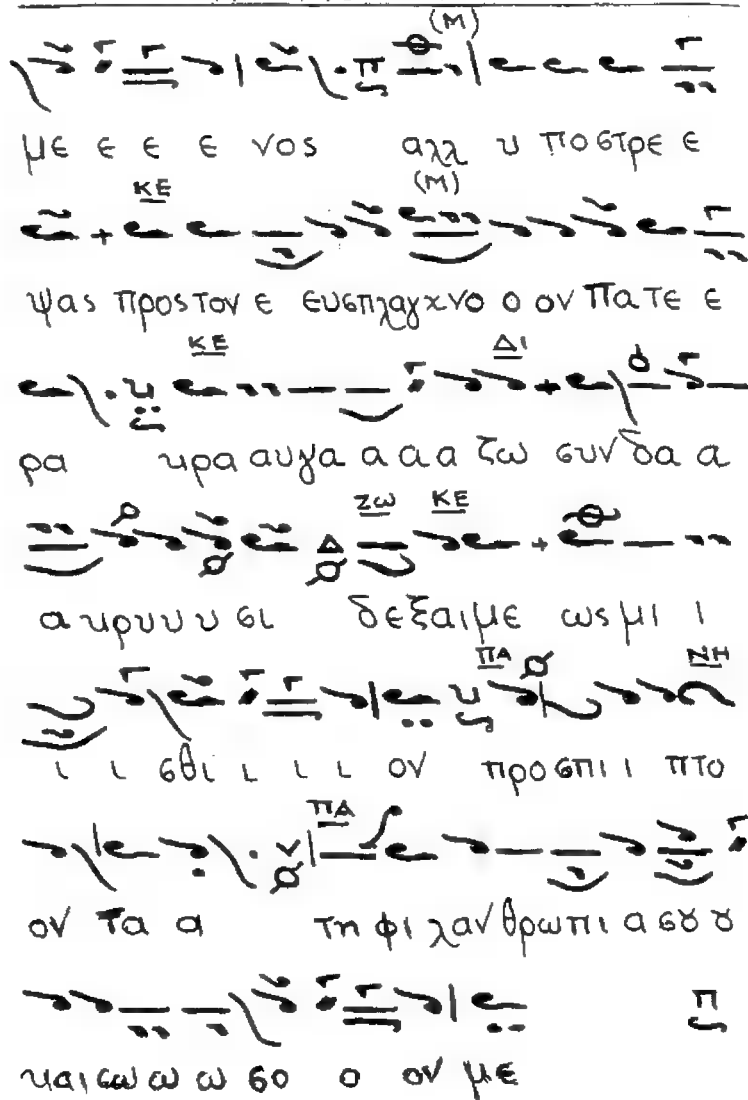 (Μ)
με ε ε ε νος αλλ υ ποστρε ε
ΚΕ (Μ)
ψας προς τον ε ευσπλαγχνο ο ον Πατε ε
ΚΕ ΔΙ
ρα κραυγα α α α ζω συν δα α
ΖΩ ΚΕ
α κρυυυ υ σι δεξαι με ως μι ι ι
ΠΑ ΝΗ
ι ι σθι ι ι ι ον προσπι ι πτο
ΠΑ
ον τα α τη φι λαν θρωπι α σȣ ȣ
και σω ω ω σο ο ον με